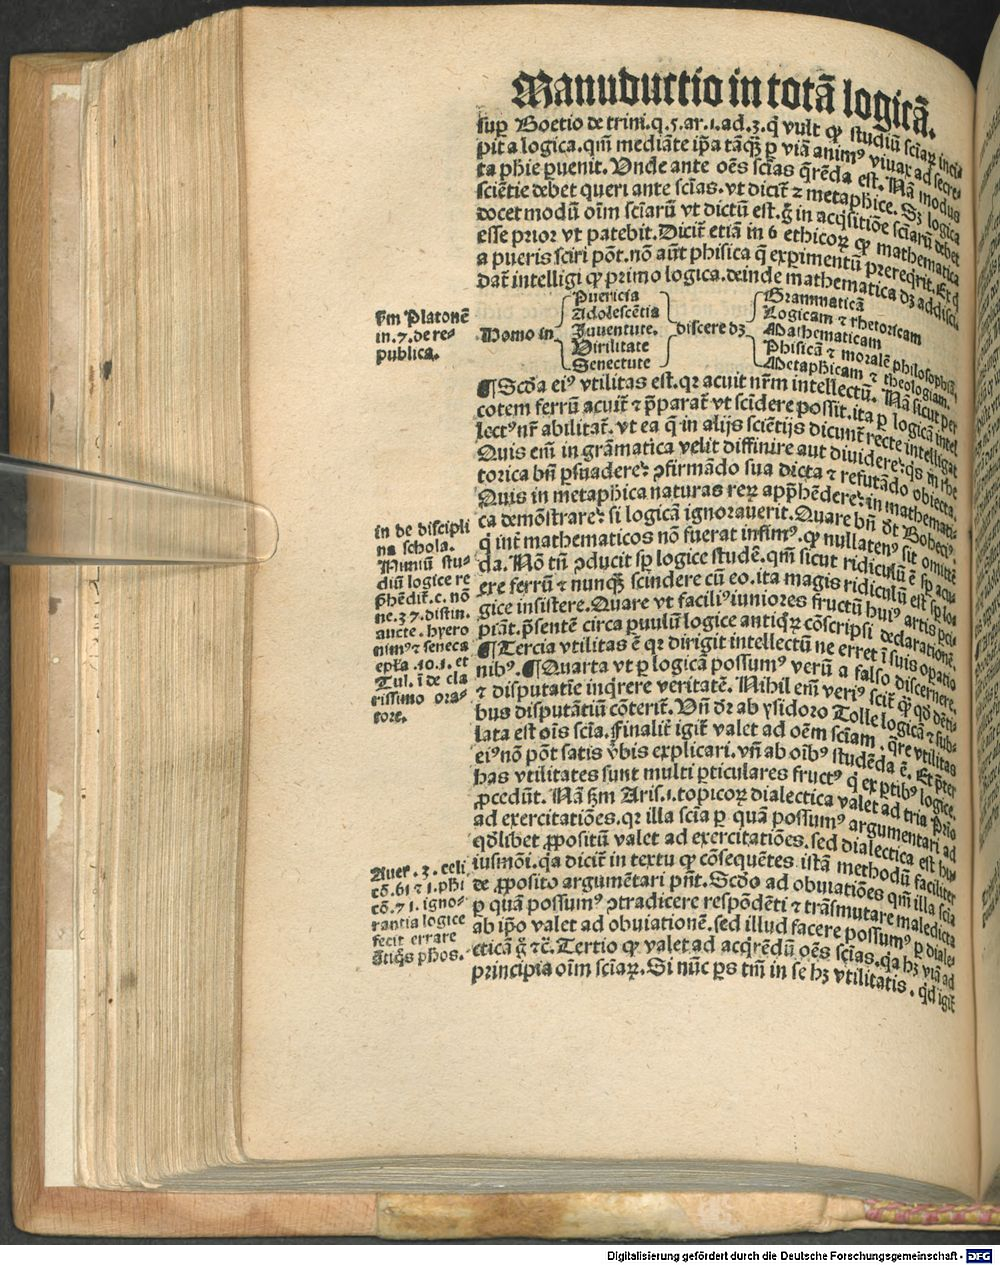 Manuductio in totā logicā.
sup Boetio de trini. q. 5. ar. 1. ad. 3. q̄ vult qꝙ studiū sciaꝝ inci
pit a logica. qm̄ mediāte ip̄a tāqꝫ ꝑ viā animꝰ viuax ad secre-
ta phie ꝑuenit. Vnde ante oēs scīas q̄rēda est. Nā modus
sciētie debet queri ante scīas. vt dicit̄ ⁊ metaphice. Sꝫ logica
docet modū oīm scīarū vt dictū est. g̊ in acq̇sitiōe sciarū debet
esse prior vt patebit. Dicit̄ etiā in 6 ethicoꝝ ꝙ mathematica
a pueris sciri pōt. nō aūt phisica q̄ exꝑimentū prereq̇rit. Et q̇
dat̄ intelligi ꝙ primo logica. deinde mathematica dꝫ addisci.
ẜm Platonē
in. 7. de re-
publica.
Homo in
Puericia
Adolescētia
Juuentute.
Virilitate
Senectute
discere dꝫ
Grammaticā
Logicam ⁊ rhetoricam
Mathematicam
Phisicā ⁊ moralē philosophiā,
Metaphicam ⁊ theologiam.
¶ Scd̄a eiꝰ vtilitas est. qꝛ acuit nr̄m intellectū. Nā sicut per
cotem ferrū acuit̄ ⁊ p̄parat̄ vt scīdere possit. ita ꝑ logicā intel
lectꝰ nr̄ abilitat̄. vt ea q̄ in alijs sciētijs dicunt̄ recte intelligat
Quis em̄ in grāmatica velit diffinire aut diuidere: q̇s in rhe
torica bn̄ ꝑsuadere: ꝯfirmādo sua dicta ⁊ refutādo obiecta.
Quis in metaph̄ica naturas reꝝ app̄hēdere: in mathemati-
ca demōstrare: si logicā ignorauerit. Quare bn̄ dt̄ Boheciꝰ
q̇ int̄ mathematicos nō fuerat infimꝰ. ꝙ nullatenꝰ sit omittē
da. Nō tn̄ ꝯducit sꝑ logice studē. qm̄ sicut ridiculū ē sꝑ acu
ere ferrū ⁊ nunqꝫ scindere cū eo. ita magis ridiculū est sꝑ lo-
gice insistere. Quare vt faciliꝰ iuniores fructū huiꝰ artis ꝑci-
piāt. p̄sentē circa ꝑuulū logice antiq̇ꝝ cōscripsi declarationē.
¶ Tercia vtilitas ē qꝛ dirigit intellectū ne erret ī suis oꝑatio
nibꝰ. ¶ Quarta vt ꝑ logicā possumꝰ verū a falso discernere,
⁊ disputatīe inq̇rere veritatē. Nihil em̄ veriꝰ scit̄ qꝫ qd̄ dēti-
bus disputātiū cōterit̄. Vn̄ dr̄ ab ysidoro Tolle logicā ⁊ sub-
lata est oīs scīa. Finalit̄ igit̄ valet ad oēm scīam. q̄re vtilitas
eiꝰ nō pōt satis v̄bis explicari. vn̄ ab oībꝰ studēda ē. Et p̄ter
has vtilitates sunt multi ꝑticulares fructꝰ q̇ ex ꝑtibꝰ logice
ꝓcedūt. Nā ẜm Aris. 1. topicoꝝ dialectica valet ad tria Prio
ad exercitatiōes. qꝛ illa scīa ꝑ quā possumꝰ argumentari ad
qd̄libet ꝓpositū valet ad exercitatiōes. sed dialectica est hu-
iusmōi. q̇a dicit̄ in textu ꝙ cōsequētes istā methodū faciliter
de ꝓposito argumētari pn̄t. Scd̄o ad obuiatiōes qm̄ illa scīa
ꝑ quā possumꝰ ꝯtradicere respōdēti ⁊ trāsmutare maledicta
ab ip̄o valet ad obuiationē. sed illud facere possumꝰ ꝑ diale-
cticā g̊ ⁊c̄. Tertio ꝙ valet ad acq̇rēdū oēs scīas. q̇a hꝫ viā ad
principia oīm sciaꝝ. Si nūc ꝑs tm̄ in se hꝫ vtilitatis. q̇d igit̄
in de discipli
na scholā.
Muniū stu-
diū logice re
p̄hēdit̄. c. nō
ne. 37. distin.
aucte. hyero
nimꝰ ⁊ seneca
epl̄a. 40. 1. et
Tul. ī de cla
rissimo ora-
tore.
Auer. 3. celi
cō. 61 ⁊ 1. phi
cō. 71. igno-
rantia logice
fecit errare
ātiq̇s phos.
Digitalisierung gefördert durch die Deutsche Forschungsgemeinschaft - DFG